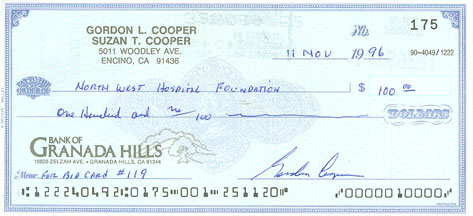 GORDON L. COOPER
SUZAN T. COOPER
5011 WOODLEY AVE.
ENCINO, CA 91436
No. 175
11 NOV 1996 90-4049/1222
PAY TO THE
ORDER OF NORTH WEST HOSPITAL FOUNDATION $ 100 00
One Hundred and no/100 DOLLARS
BANK OF
GRANADA HILLS
10820 ZELZAH AVE. • GRANADA HILLS, CA 91344
Memo FOR BID CARD #119 Gordon Cooper
⑆122240492⑆0175 001 251120⑈ ⑈0000010000⑈